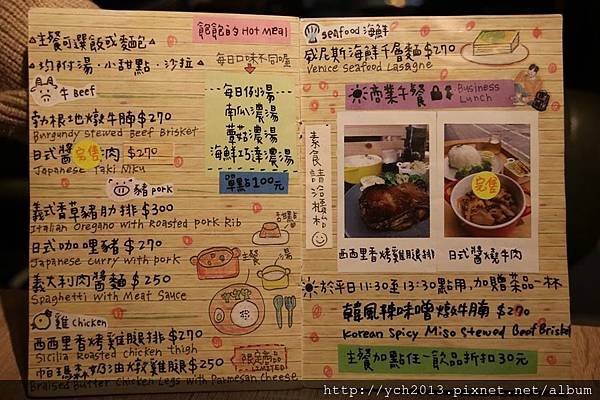 飽飽的Hot meal
主餐可選飯或麵包
均附湯·小甜點·沙拉
牛 Beef
勃根地燉牛腩$270
Burgundy Stewed Beef Brisket
日式醬 完售 肉 $270
Japanese Yaki Niku
豬 pork
義式香草豬肋排 $300
Italian Oregano with Roasted pork Rib
日式咖哩豬 $270
Japanese Curry with pork
義大利肉醬麵 $250
Spaghetti with Meat Sauce
雞 chicken
西西里香烤雞腿排 $270
Sicilia Roasted chicken thigh
帕瑪森奶油燉雞腿$250
Braised Butter Chicken Legs with Parmesan Cheese
每日口味不同喔
每日例湯
南瓜濃湯
蘑菇濃湯
海鮮巧達濃湯
單點100元
甜點
主餐
湯
限定商品
LIMITED!
seafood 海鮮
威尼斯海鮮千層麵 $270
Venice Seafood Lasagne
商業午餐
Business Lunch
素食請洽櫃枱
完售
西西里香烤雞腿排
日式醬燒牛肉
於平日11:30至13:30點用,加贈茶品一杯
韓風辣味噌燉牛腩 $270
Korean Spicy Miso Stewed Beef Brisket
主餐加點任一飲品折扣30元
http://ych2013.pixnet.net/album